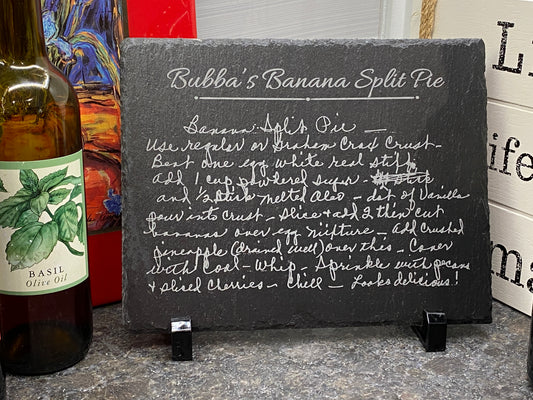 Bubba's Banana Split Pie
Banana Split Pie —
Use regular or Graham Crax Crust -
Beat one egg white real stiff,
add 1 cup powdered sugar -
and 1/2 stick melted oleo - dst. of Vanilla
pour into crust - slice & add 2 thin cut
bananas over egg mixture - add crushed
pineapple (drained well) over this - Cover
with Cool - Whip - Sprinkle with pecans
& sliced cherries - Chill - Looks delicious!
BASIL
Olive Oil
Li
ife
ma